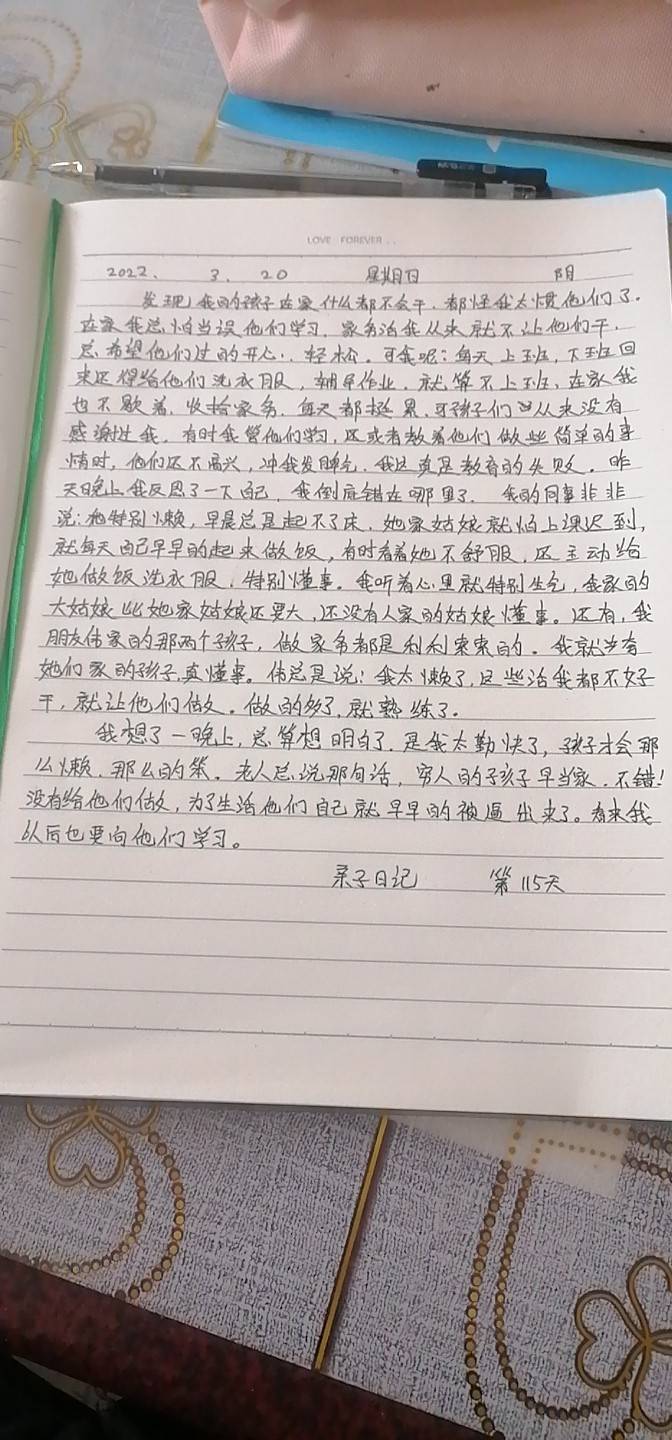 LOVE FOREVER . .
2022. 3. 20 星期日 阴
发现我的孩子在家什么都不会干,都怪我太惯他们了.
在家我总怕当误他们学习,家务活我从来就不让他们干,
总希望他们过的开心,轻松。可我呢:每天上班,下班回
来还得给他们洗衣服,辅导作业,就算不上班,在家我
也不歇着,收拾家务,每天都挺累,可孩子们从来没有
感谢过我,有时我管他们学习,区或者教着他们做些简单的事
情时,他们还不高兴,冲我发脾气,我这真是教育的失败。昨
天晚上我反思了一下自己,我倒底错在哪里了.我的同事非非
说:她特别懒,早晨总是起不了床,她家姑娘就怕上课迟到,
就每天自己早早的起来做饭,有时看着她不舒服,还主动给
她做饭洗衣服,特别懂事。我听着心里就特别生气,我家的
大姑娘比她家姑娘还要大,还没有人家的姑娘懂事。还有,我
朋友伟家的那两个孩子,做家务都是利利索索的。我就夸
她们家的孩子,真懂事。伟总是说:我太懒了,这些活我都不好
干,就让他们做。做的多了,就熟练了.
我想了一晚上,总算想明白了,是我太勤快了,孩子才会那
么懒,那么的笨。老人总说那句话,穷人的孩子早当家.不错!
没有给他们做,为了生活他们自己就早早的被逼出来了。看来我
以后也要向他们学习。
亲子日记 第115天